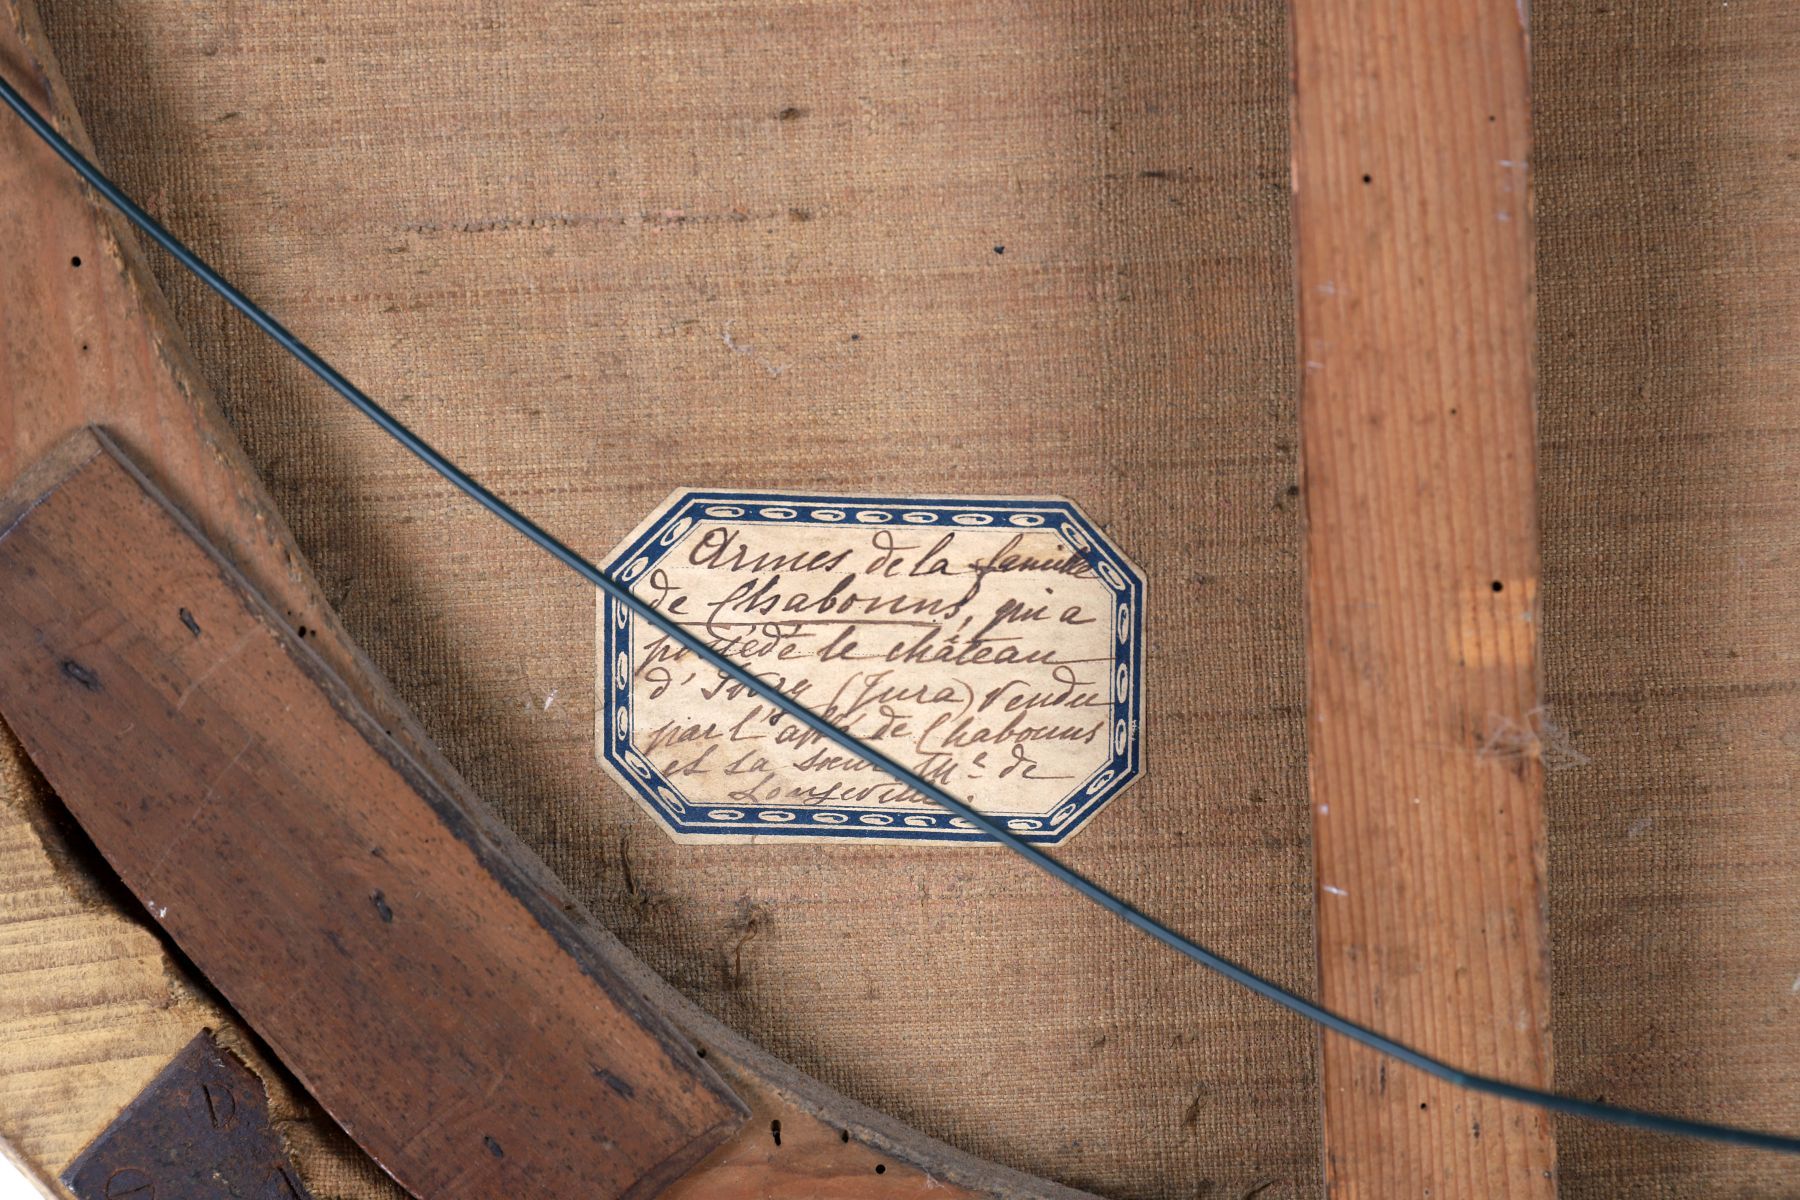 Armes de la famille
de Chabouns, qui a
possédé le château
d' (Jura) Vendu
par l' de Chabouns
et sa sœur Me de
Longeville.